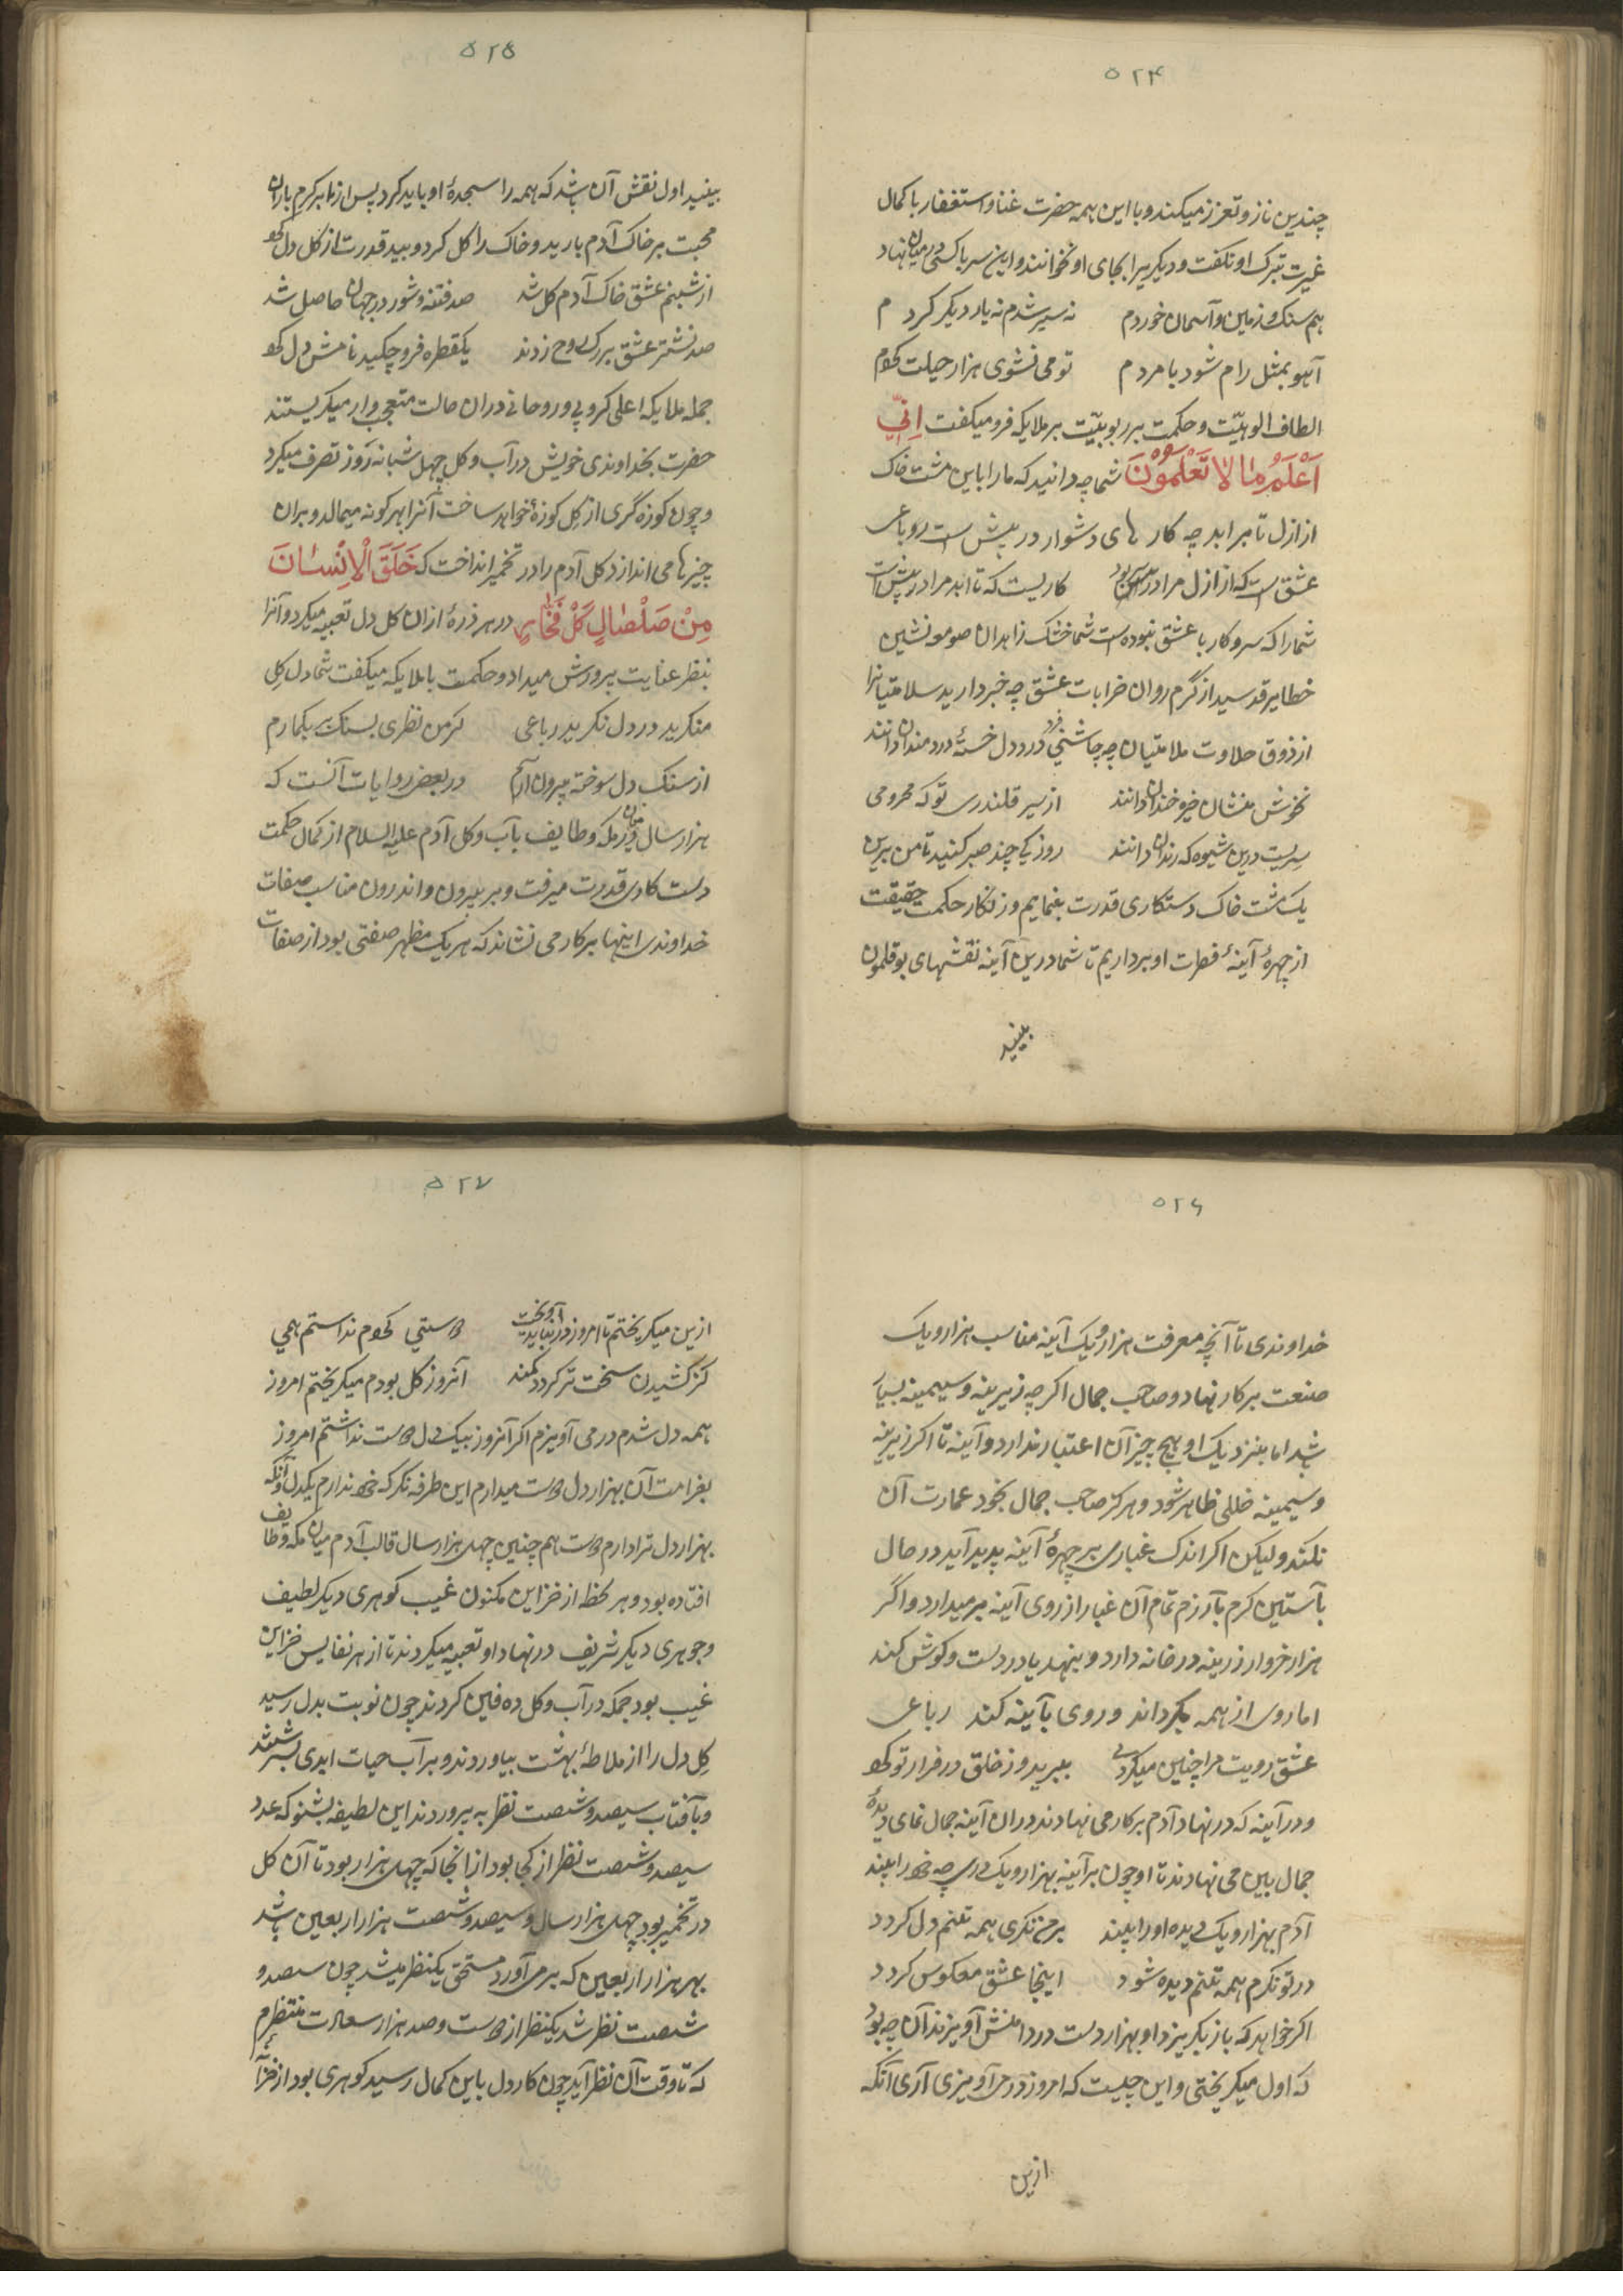 ۵۲۴
چندین ناز و تعزز میکند و با این همه حضرت غنا و استغفار با کمال
غیرت بترک او نگفت و دیگریرا بجای او نخوانند و این سر با کسی در میان نهاد
هم سنگ زمین و آسمان خوردم نه سیر شدم نه یار دیگر کردم
آهو بمثل رام شود با مردم تو می نشوی هزار حیلت کردم
الطاف الوهیّت و حکمت ربوبیّت بر ملایکه فرو میگفت اِنِّی
اَعْلَمُ مٰا لاٰ تَعْلَمُوْنَ شما چه دانید که ما را با این مشت خاک
از ازل تا بر ابد چه کار های دشوار در پیش است رباعی
عشق است که از ازل مرا در سر بود کاریست که تا ابد مرا در پیش است
شما را که سر و کار با عشق نبوده است شما خشک زاهدان صومعه نشین
خطایر قدسید از گرم روان خرابات عشق چه خبر دارید سلامتیانرا
از ذوق حلاوت ملامتیان چه چاشنی فرد درد دل خستهٔ دردمندان دانند
نخوش منشان خیره خندان دانند از سر قلندری تو که محرومی
سریست درین شیوه که رندان دانند روزکی چند صبر کنید تا من برین
یک مشت خاک دستکاری قدرت بنمایم و زنگار حکمت حقیقت
از چهرهٔ آینهٔ فطرت او برداریم تا شما درین آینه نقشهای بوقلمون
ببینید
۵۲۵
ببینید اول نقش آن باشد که همه را سجدهٔ او باید کرد پس از ابر کرم باران
محبت بر خاک آدم بارید و خاک را گل کرد و بید قدرت از گل دل کرد
از شبنم عشق خاک آدم گل شد صد فتنه و شور در جهان حاصل شد
صد نشتر عشق بر رگ روح زدند یکقطره فرو چکید نامش دل کرد
جمله ملایکه اعلی کروبی و روحانی دران حالت متعجب وار میگریستند
حضرت بخداوندی خویش در آب و گل چهل شبانه روز تصرف میکرد
و چون کوزه گری از گل کوزهٔ خواهد ساخت آنرا بهر گونه میمالد و بران
چیزها می اندازد گل آدم را در تخمیر انداخت که خَلَقَ الْاِنْسٰانَ
مِنْ صَلْصٰالٍ کَالْفَخّٰارِ در هر ذرهٔ ازان گل دل تعبیه میکرد و آنرا
بنظر عنایت پرورش میداد و حکمت با ملایکه میگفت شما دل گل
منگرید در دل نگرید رباعی گر من نظری بسنگ بر بگمارم
از سنگ دل سوخته بیرون آرم در بعض روایات آنست که
هزار سال در میان مکه و طایف بآب و گل آدم علیه السلام از کمال حکمت
دست کاری قدرت میرفت و بر بیرون و اندرون مناسب صفات
خداوندی اینها بر کار می نشاند که هر یک مظهر صفتی بود از صفات
۵۲۶
خداوندی تا آنچه معرفت هزار و یک آینه مناسب هزار و یک
صنعت بر کار نهاد و صاحب جمال اگر چه زیرینه و سیمینه بسیار
باشد اما بنزدیک او هیچ چیز آن اعتبار ندارد و آینه تا اگر زیرینه
و سیمینه خللی ظاهر شود و هرگز صاحب جمال بخود عمارت آن
نکند ولیکن اگر اندک غباری بر چهرهٔ آینه پدید آید در حال
بآستین کرم بآرزم تمام آن غبار از روی آینه بر میدارد و اگر
هزار خروار زرینه در خانه دارد و بنهد یا در دست و گوش کند
اما روی از همه بگرداند و روی بآینه کند رباعی
عشق رویت مرا چنین میکردی ببرید و ز خلق در فرار تو کرد
و در آینه که در نهاد آدم بر کار می نهادند دران آینه جمال نمای دیدهٔ
جمال بین می نهادند تا او چون بر آینه بهزار و یک دریچه خود را بیند
آدم بهزار و یک دیده او را بیند بر من نگری همه تنم دل گردد
در تو نگرم همه تنم دیده شود اینجا عشق معکوس گردد
اگر خواهد که باز بگریزد او بهزار دست در دامنش آویزند آن چه بود
که اول میگریختی و این چیست که امروز در می آویزی آری آنگه
ازین
۵۲۷
ازین میگریختم تا امروز در نباید آویخت دوستی کردم ندانستم همی
کز کشیدن سخت تر گردد کمند آنروز گل بودم میگریختم امروز
همه دل شدم در می آویزم اگر آنروز بیک دل دوست نداشتم امروز
بغرامت آن بهزار دل دوست میدارم این طرفه نگر که خود ندارم یکدل و آنگه
بهزار دل ترا دارم دوست هم چنین چهل هزار سال قالب آدم میان مکه و طایف
افتاده بود و هر لحظه از خزاین مکنون غیب گوهری دیگر لطیف
و جوهری دیگر شریف در نهاد او تعبیه میکردند تا از هر نفایس خزاین
غیب بود جمله در آب و گل دفین کردند چون نوبت بدل رسید
گل دل را از ملاطهٔ بهشت بیاوردند و بر آب حیات ابدی بسرشتند
و بآفتاب سیصد و شصت نظر به پروردند این لطیفه بشنو که عدد
سیصد و شصت نظر از کجا بود از انجا که چهل هزار بود تا آن گل
در تخمیر بود چهل هزار سال و سیصد و شصت هزار اربعین باشد
بهر هزار اربعین که بر می آورد مستحق یکنظر میشد چون سیصد و
شصت نظر شد یکنظر از دوست و صد هزار سعادت منتظرم
که تا وقت آن نظر آید چون کار دل باین کمال رسید گوهری بود از خزا